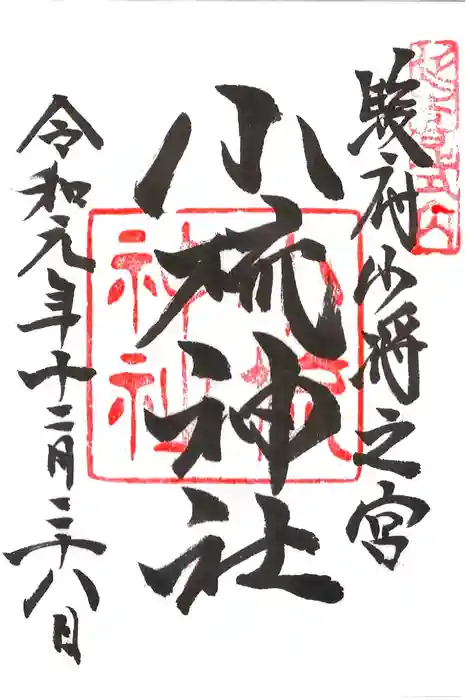 駿府少将之宮
小梳神社
小梳神社
令和元年十二月二十八日